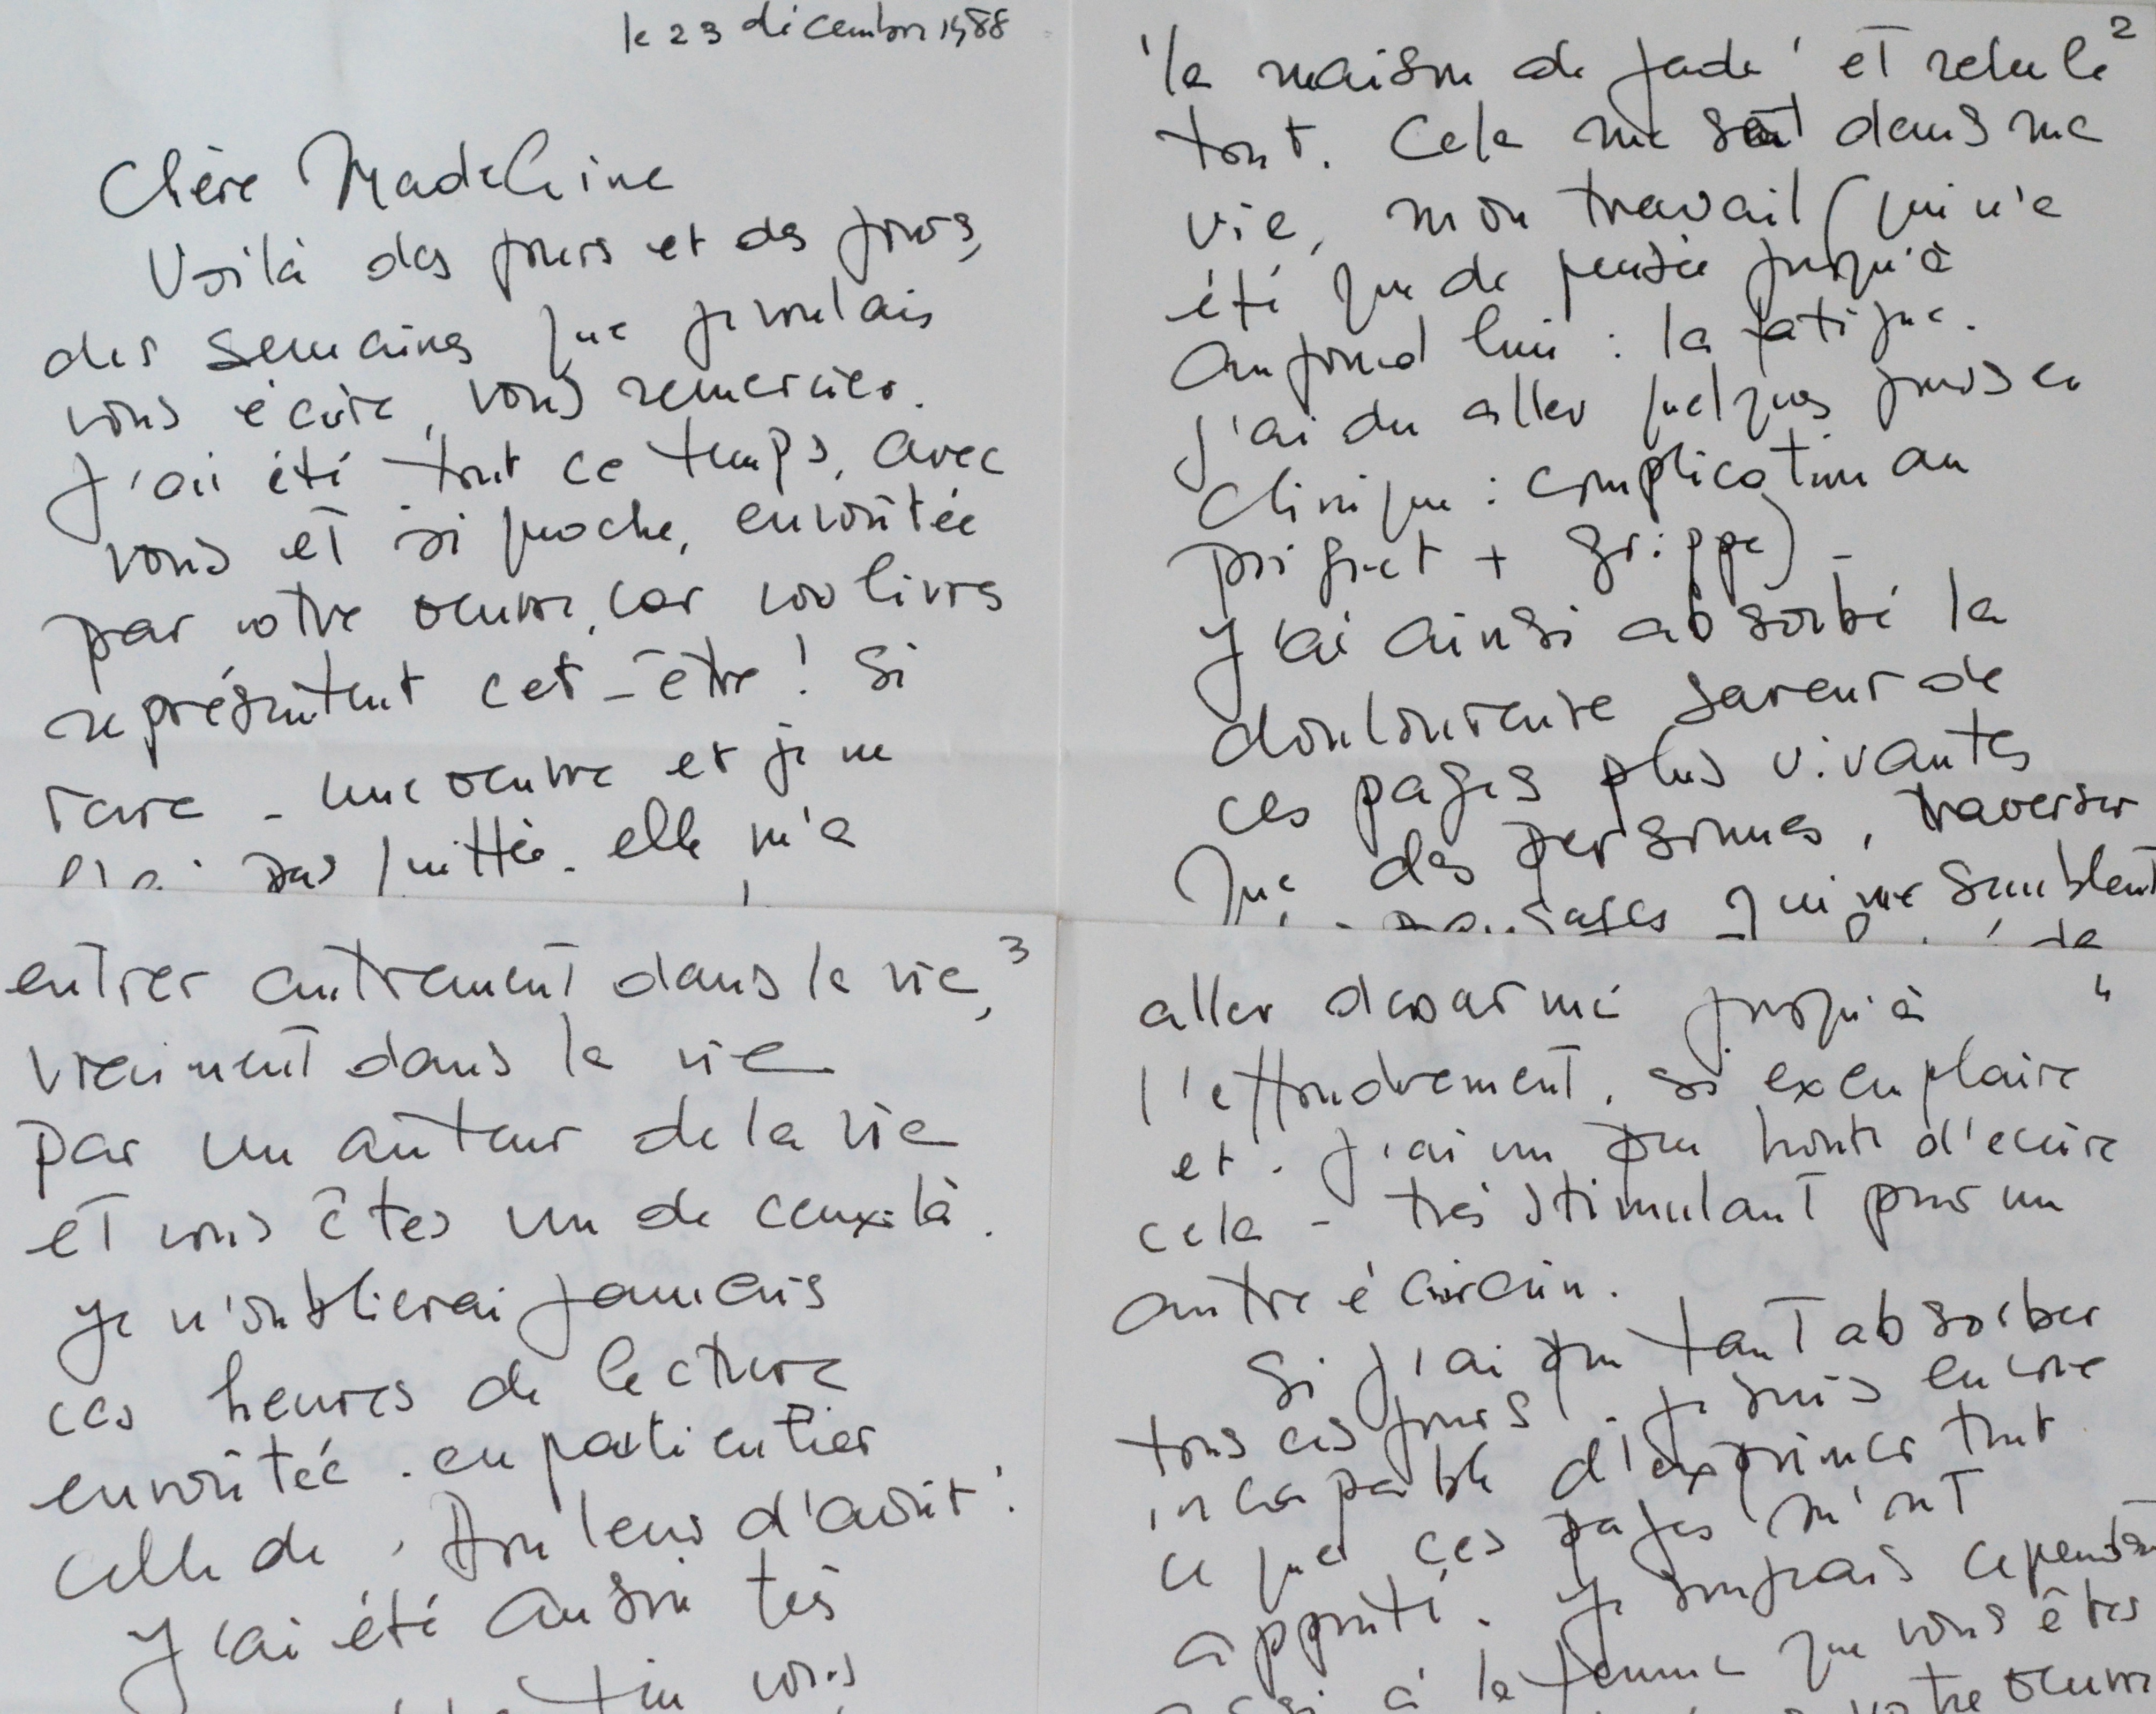 le 23 décembre 1988
Chère Madeleine
Voilà des jours et des jours,
des semaines que je voulais
vous écrire, vous remercier.
J'ai été tout ce temps, avec
vous et si proche, envoûtée
par votre œuvre, car vos livres
représentent cet-être ! Si
rare - une œuvre et je ne
l'ai pas quittée. elle m'a
2
'la maison de jade' et relu le
tout. Cela me suit dans ma
vie, mon travail (qui n'a
été que de pensée jusqu'à
aujourd'hui : la fatigue.
J'ai du aller quelques jours en
clinique : complication au
poignet + grippe) -
J'ai ainsi absorbé la
douloureuse saveur de
ces pages plus vivantes
que des personnes, traverser
passages qui me semblent
de
3
entrer autrement dans la vie,
vraiment dans la vie
par un auteur de la vie
et vous êtes un de ceux-là.
Je n'oublierai jamais
ces heures de lecture
envoûtée. en particulier
celle de 'Douleur d'août'.
J'ai été aussi très
vous
4
aller désarmé jusqu'à
l'effondrement. si exemplaire
et - j'ai un peu honte d'écrire
cela - très stimulant pour un
autre écrivain.
Si j'ai pu tant absorber
tous ces jours. je suis encore
incapable d'exprimer tout
ce que ces pages m'ont
apporté. Je songeais cependant
aussi à la femme que vous êtes
votre œuvre